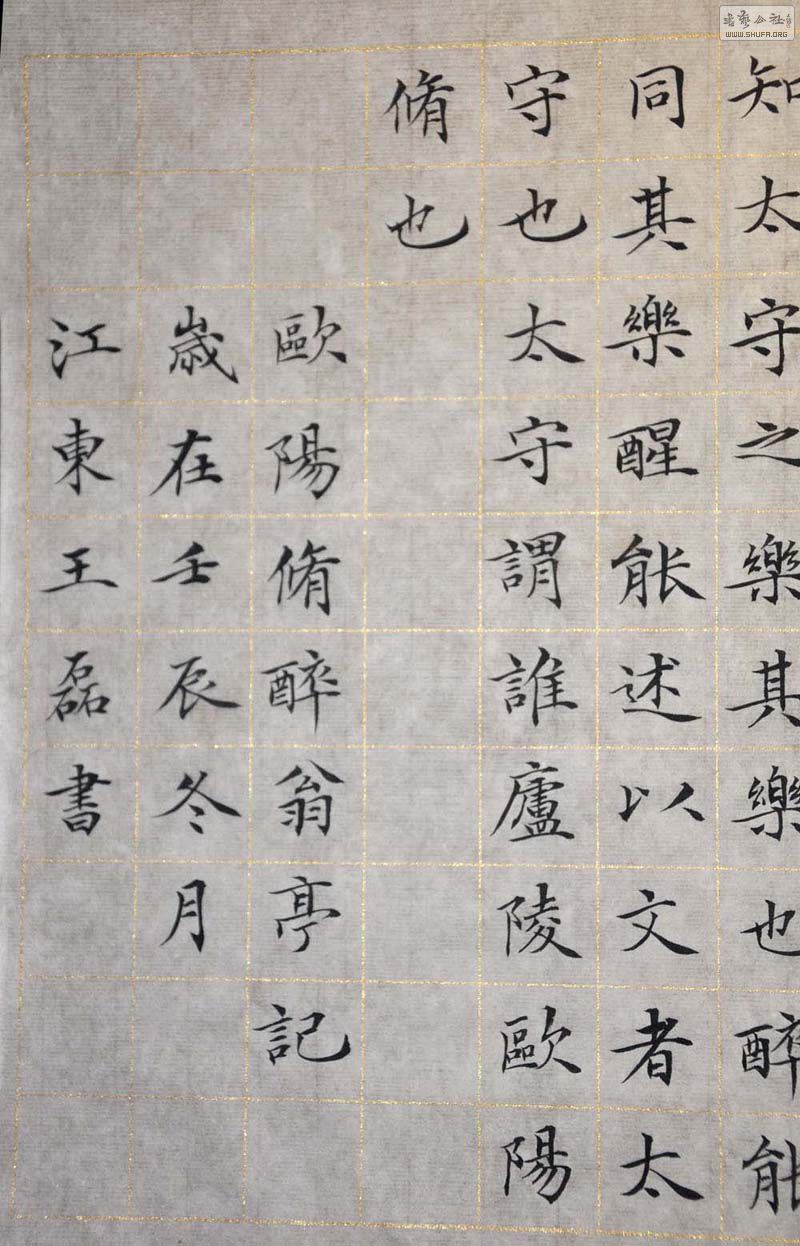 知太守之樂其樂也醉能
同其樂醒能述以文者太
守也太守謂誰廬陵歐陽
脩也
歐陽脩醉翁亭記
歲在壬辰冬月
江東王磊書
書藝公社
WWW.SHUFA.ORG